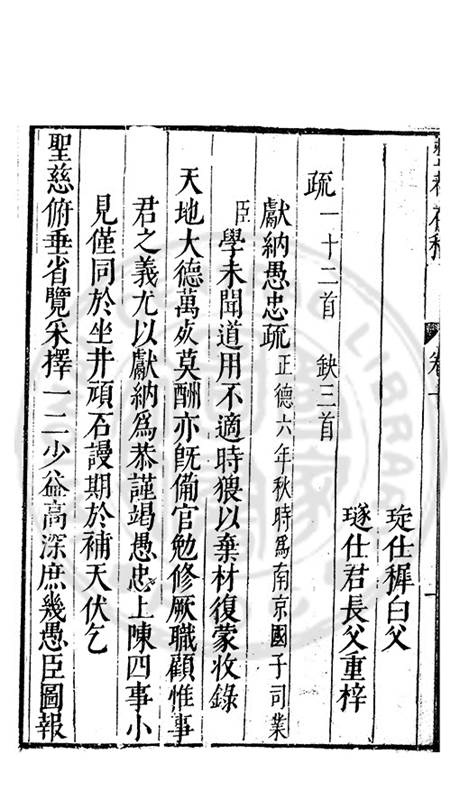 琁仕穉白父
璲仕君長父重梓
疏一十二首　缺三首
獻納愚忠疏正德六年秋時爲南京國子司業
臣學未聞道用不適時猥以棄材復蒙收錄
天地大德萬死莫酬亦旣備官勉修厥職顧惟事
君之義尤以獻納爲恭謹竭愚忠上陳四事小
見僅同於坐井頑石謾期於補天伏乞
聖慈俯垂省覽采擇一二少益高深庶幾愚臣圖報
存稿
卷一
一